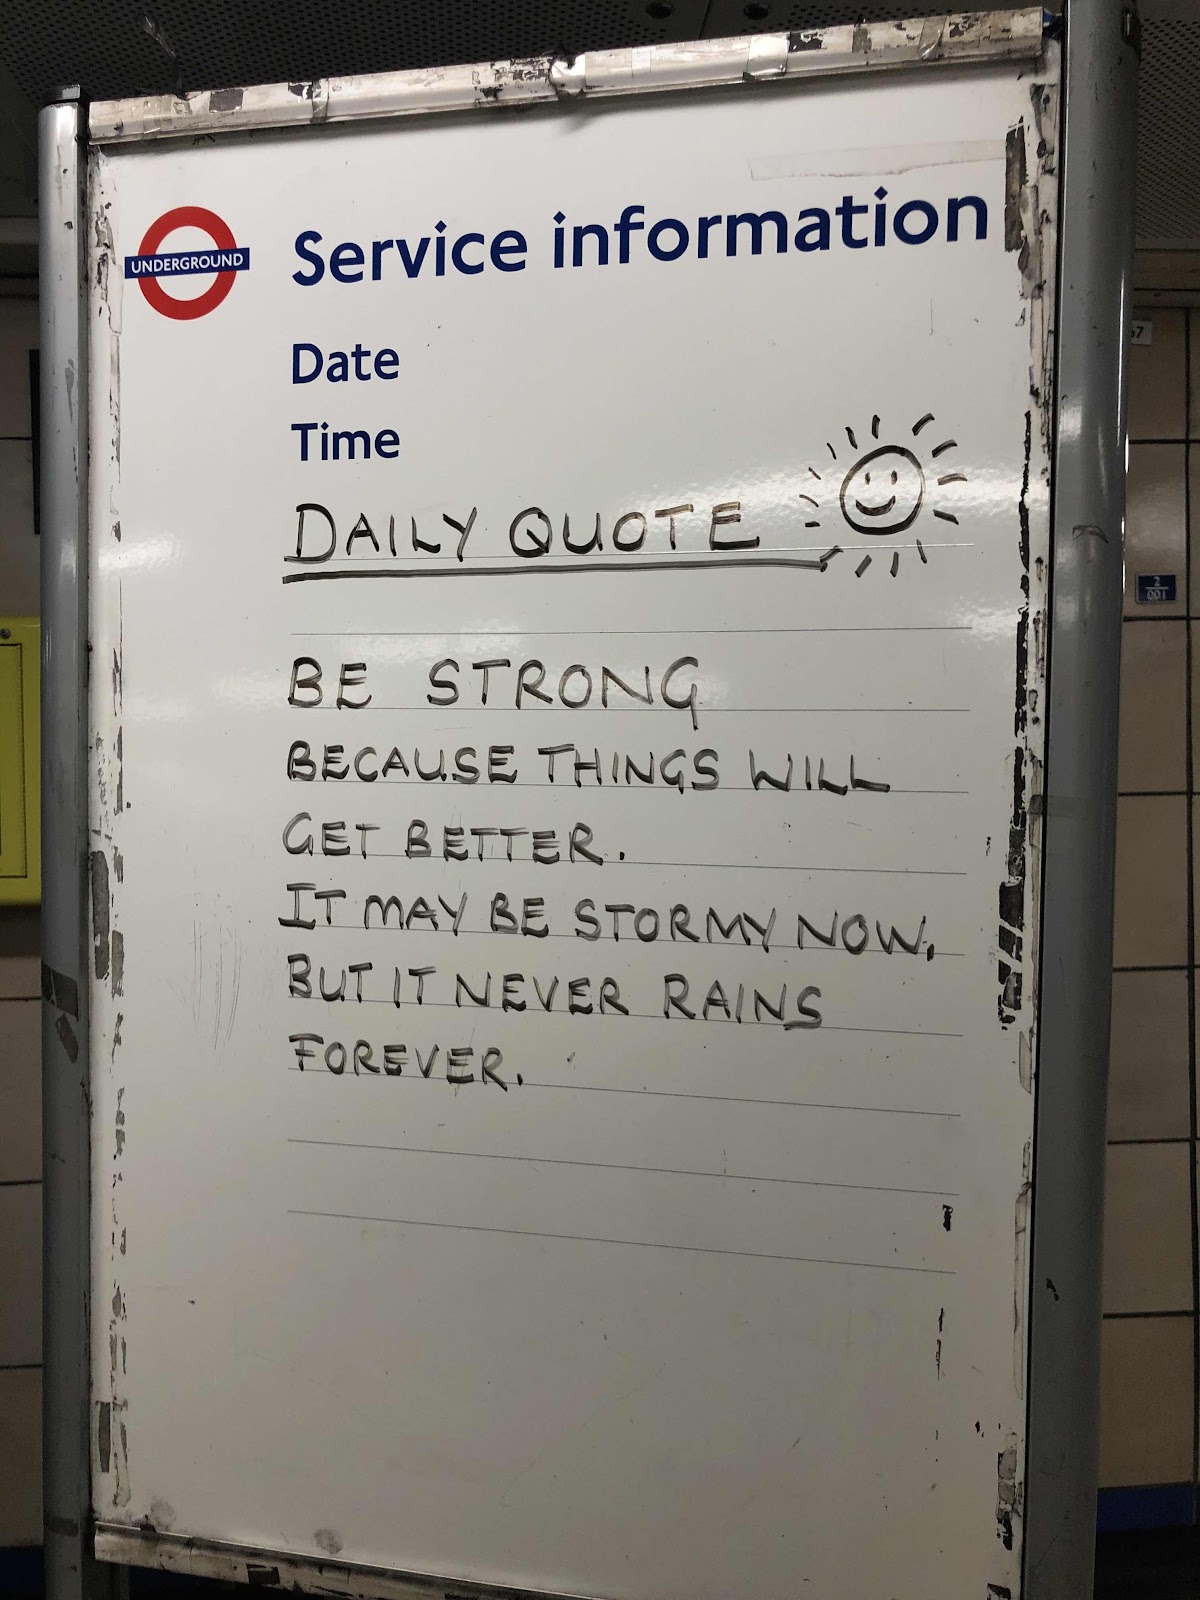 UNDERGROUND
Service information
Date
Time
DAILY QUOTE
BE STRONG
BECAUSE THINGS WILL
GET BETTER.
IT MAY BE STORMY NOW,
BUT IT NEVER RAINS
FOREVER.